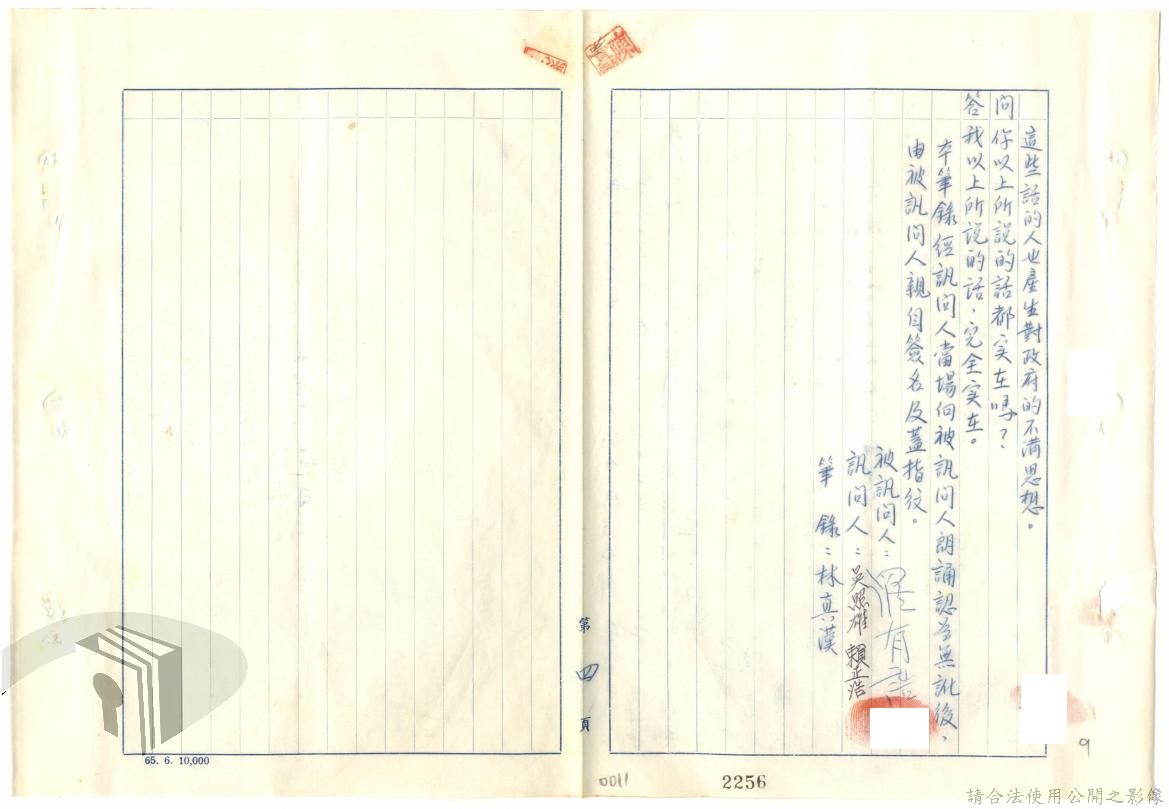 這些話的人也產生對政府的不滿思想。
問 你以上所說的話都实在嗎？
答 我以上所說的話，完全实在。
本筆錄經訊问人當場向被訊问人朗誦認為無訛後，
由被訊问人親自簽名及蓋指紋。
被訊问人：
訊问人：吳照雄 賴正浩
筆 錄：林真漢
第 四 頁
65. 6. 10,000
0011
2256
9
請合法使用公開之影像